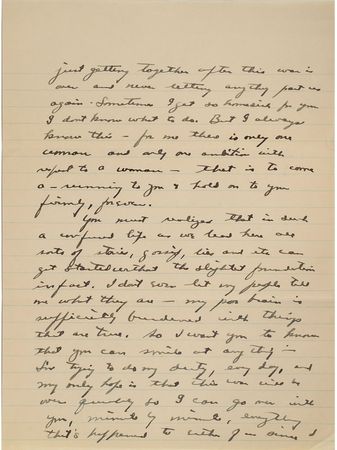 just getting together after this war is
over and never letting anything part us
again. Sometimes I get so homesick for you
I don't know what to do. But I always
know this — for me there is only one
woman and only one ambition with
respect to a woman — that is to come
a-running to you & hold on to you
firmly, forever.
You must realize that in such
a confused life as we lead here all
sorts of stories, gossip, lies and etc can
get started without the slightest foundation
in fact. I don't even let my people tell
me what they are — my poor brain is
sufficiently burdened with things
that are true. So I want you to know
that you can smile at anything —
I'm trying to do my duty, every day, and
my only hope is that this war will be
over quickly so I can go over with
you, minute by minute, everything
that's happened to either of us since I